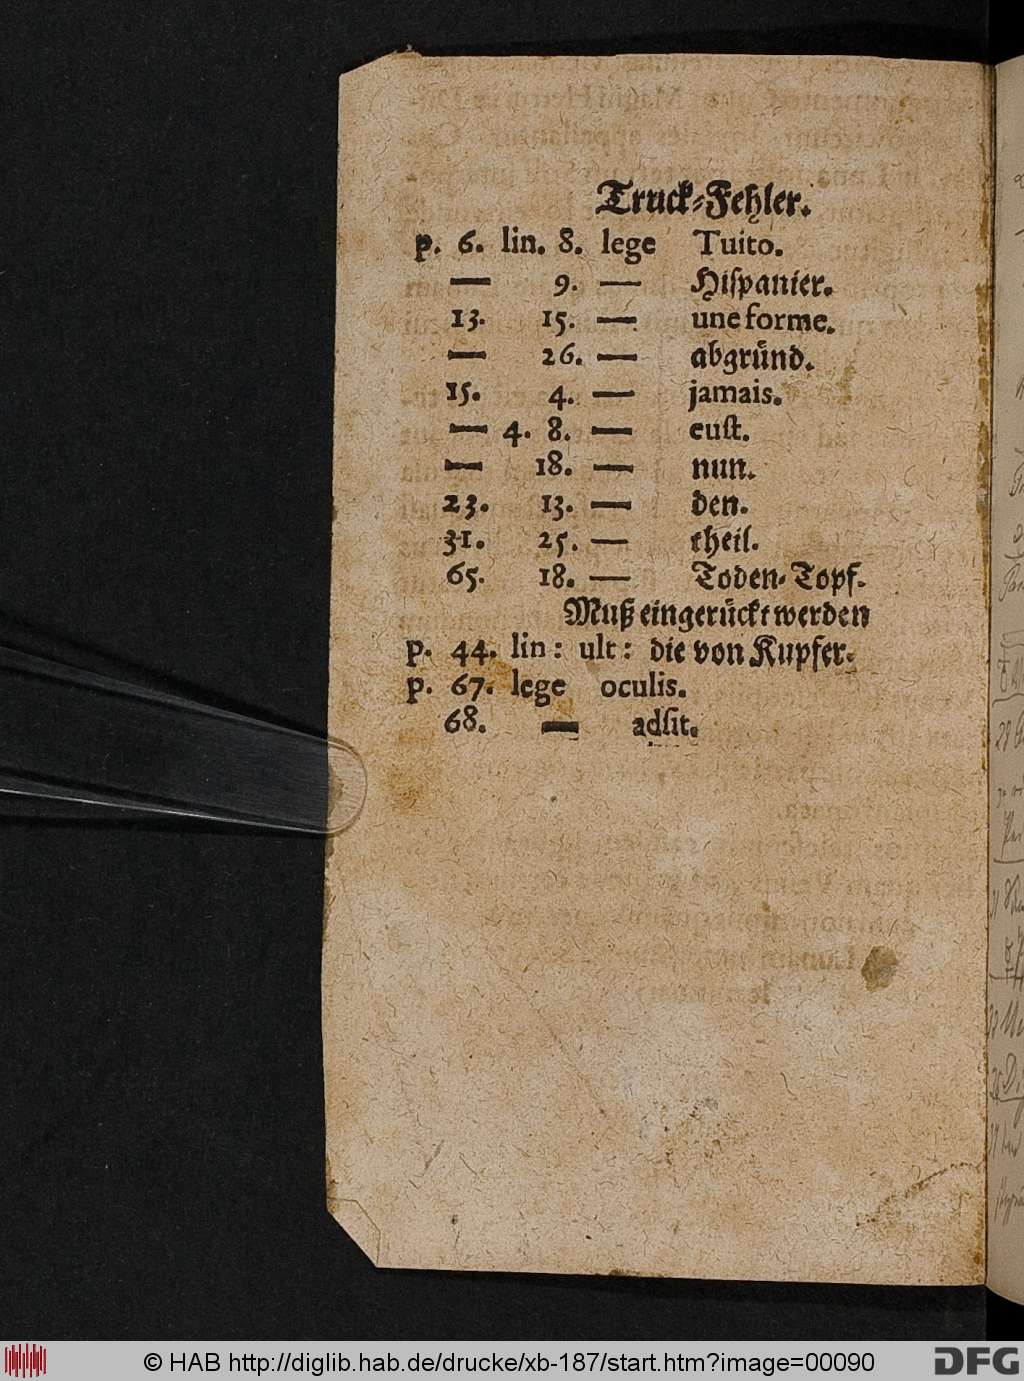 Truck-Fehler.
p. 6. lin. 8. lege Tuito.
— 9. — Hiſpanier.
13. 15. — une forme.
— 26. — abgründ.
15. 4. — jamais.
— 4. 8. — euſt.
— 18. — nun.
23. 13. — den.
31. 25. — theil.
65. 18. — Toden-Topf.
Muß eingerückt werden
p. 44. lin: ult: die von Kupfer.
p. 67. lege oculis.
68. — adſit.
© HAB http://diglib.hab.de/drucke/xb-187/start.htm?image=00090
DFG